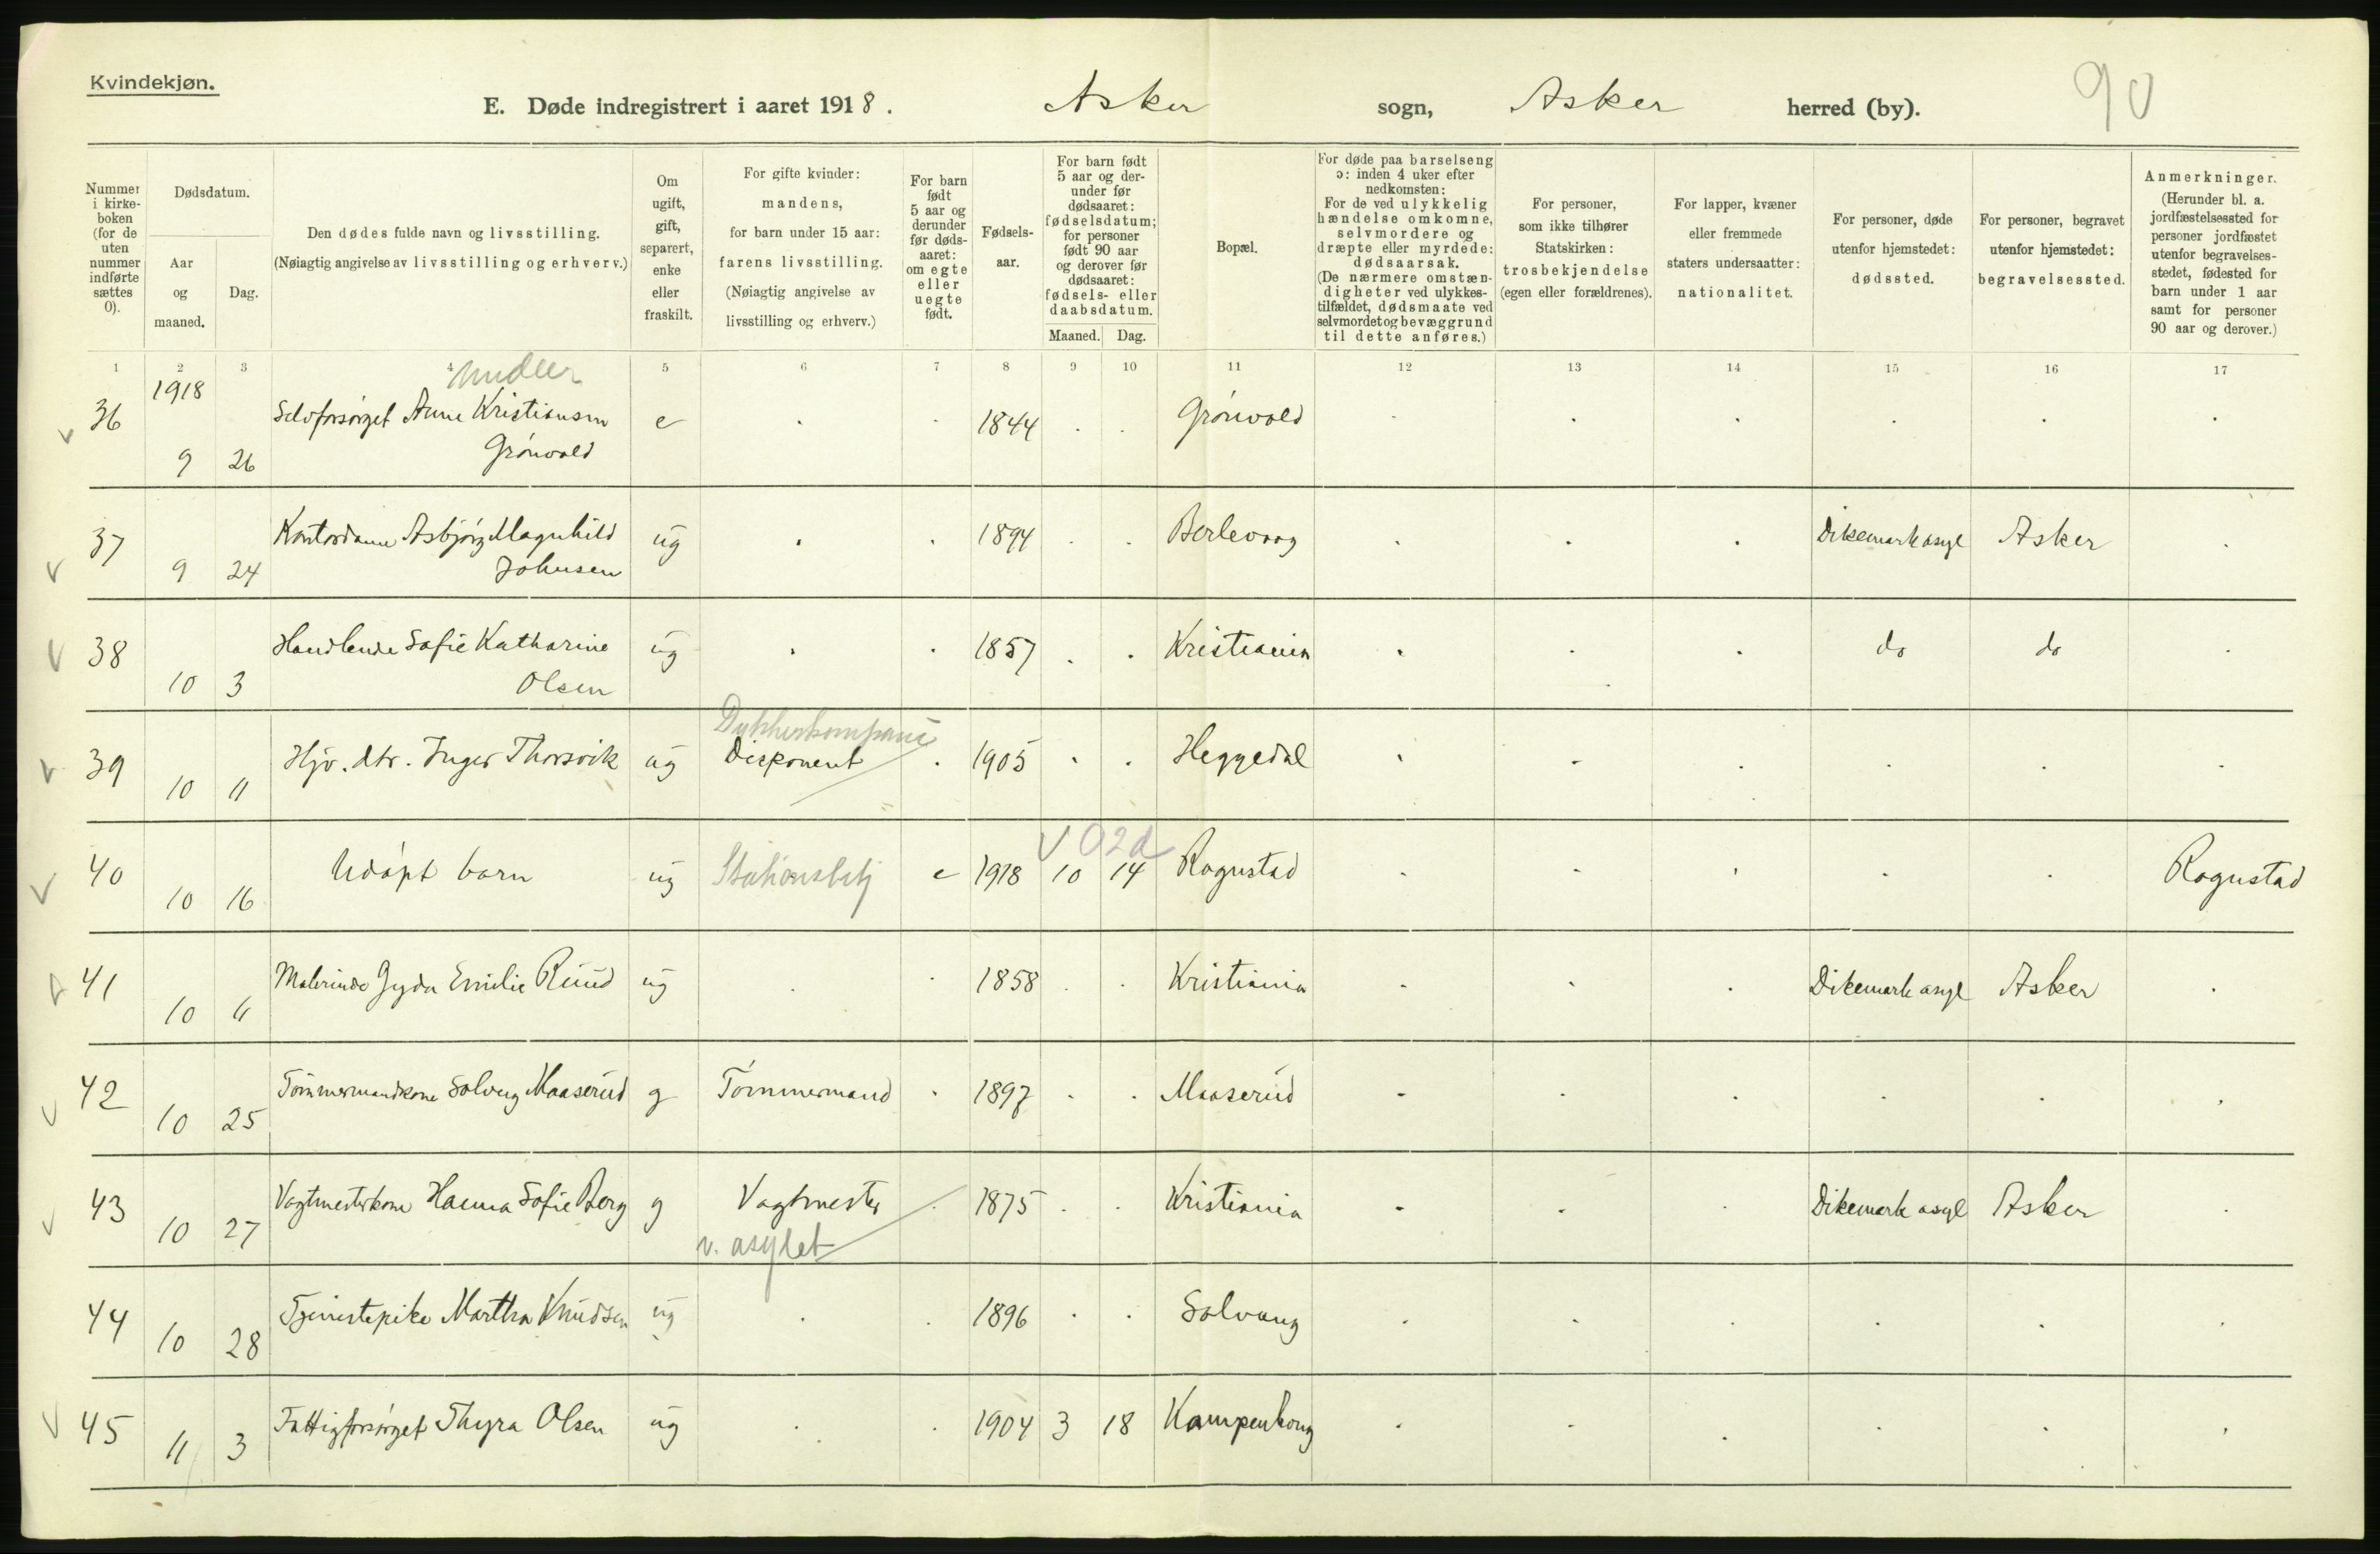 Kvindekjøn.
E. Døde indregistrert i aaret 1918. Asker sogn, Asker herred (by). 90
Nummer i kirkeboken (for de uten nummer indførte sættes 0).
Dødsdatum.
Aar og maaned.
Dag.
Den dødes fulde navn og livsstilling.
(Nøiagtig angivelse av livsstilling og erhverv.)
Om ugift, gift, separert, enke eller fraskilt.
For gifte kvinder: mandens, for barn under 15 aar: farens livsstilling. (Nøiagtig angivelse av livsstilling og erhverv.)
For barn født 5 aar og derunder før dødsaaret: om egte eller uegte født.
Fødselsaar.
For barn født 5 aar og derunder før dødsaaret: fødselsdatum; for personer født 90 aar og derover før dødsaaret: fødsels- eller daabsdatum.
Maaned. Dag.
Bopæl.
For døde paa barselseng ɔ: inden 4 uker efter nedkomsten: For de ved ulykkelig hændelse omkomne, selvmordere og dræpte eller myrdede: dødsaarsak. (De nærmere omstændigheter ved ulykkestilfældet, dødsmaate ved selvmordet og bevæggrund til dette anføres.)
For personer, som ikke tilhører Statskirken: trosbekjendelse (egen eller forældrenes).
For lapper, kvæner eller fremmede staters undersaatter: nationalitet.
For personer, døde utenfor hjemstedet: dødssted.
For personer, begravet utenfor hjemstedet: begravelsessted.
Anmerkninger. (Herunder bl. a. jordfæstelsessted for personer jordfæstet utenfor begravelsesstedet, fødested for barn under 1 aar samt for personer 90 aar og derover.)
1 2 3 4 5 6 7 8 9 10 11 12 13 14 15 16 17
1918
36 9 26 Selvforsørget Anne Kristiansen e 1844 Grönvold
Grönvold
37 9 24 Kontordame Asbjörg Magnhild ug 1894 Berlevaag Dikemark asyl Asker
Johnsen
38 10 3 Handlende Sofie Katharine ug 1857 Kristiania do do
Olsen
Dykkerkompani
39 10 11 Hjv. dtr. Inger Thorsvik ug Disponent 1905 Heggedal
V 02d
40 10 16 Udøpt barn ug Stationsbetj e 1918 10 14 Rognstad Rognstad
41 10 11 Malerinde Gyda Emilie Ruud ug 1858 Kristiania Dikemark asyl Asker
42 10 25 Tömmermandkone Solveig Maaserud g Tömmermand 1897 Maaserud
43 10 27 Vagtmesterkone Hanna Sofie Berg g Vagtmester 1875 Kristiania Dikemark asyl Asker
v. asylet
44 10 28 Tjenestepike Martha Knudsen ug 1896 Solvang
45 11 3 Fattigforsørget Thyra Olsen ug 1904 3 18 Kampenhaug